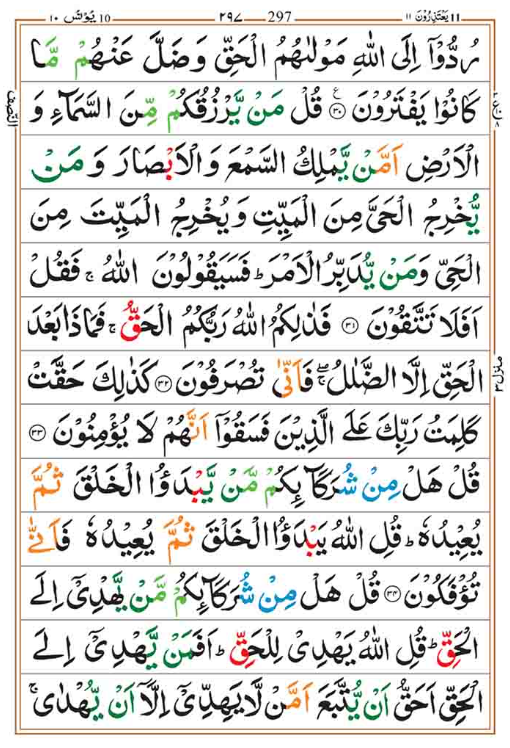 يَعْتَذِرُوْنَ ١١ ٢٩٧ 297 يُوْنُس ١٠
رُدُّوْٓا اِلَى اللّٰهِ مَوْلٰىهُمُ الْحَقِّ وَضَلَّ عَنْهُمْ مَّا
كَانُوْا يَفْتَرُوْنَ ﴿٣٠﴾ ع قُلْ مَنْ يَّرْزُقُكُمْ مِّنَ السَّمَآءِ وَ
الْاَرْضِ اَمَّنْ يَّمْلِكُ السَّمْعَ وَالْاَبْصَارَ وَمَنْ
يُّخْرِجُ الْحَيَّ مِنَ الْمَيِّتِ وَيُخْرِجُ الْمَيِّتَ مِنَ
الْحَيِّ وَمَنْ يُّدَبِّرُ الْاَمْرَ ؕ فَسَيَقُوْلُوْنَ اللّٰهُ ۚ فَقُلْ
اَفَلَا تَتَّقُوْنَ ﴿٣١﴾ فَذٰلِكُمُ اللّٰهُ رَبُّكُمُ الْحَقُّ ۚ فَمَاذَا بَعْدَ
الْحَقِّ اِلَّا الضَّلٰلُ ۖۚ فَاَنّٰى تُصْرَفُوْنَ ﴿٣٢﴾ كَذٰلِكَ حَقَّتْ
كَلِمَتُ رَبِّكَ عَلَى الَّذِيْنَ فَسَقُوْٓا اَنَّهُمْ لَا يُؤْمِنُوْنَ ﴿٣٣﴾
قُلْ هَلْ مِنْ شُرَكَآئِكُمْ مَّنْ يَّبْدَؤُا الْخَلْقَ ثُمَّ
يُعِيْدُهٗ ؕ قُلِ اللّٰهُ يَبْدَؤُا الْخَلْقَ ثُمَّ يُعِيْدُهٗ فَاَنّٰى
تُؤْفَكُوْنَ ﴿٣٤﴾ قُلْ هَلْ مِنْ شُرَكَآئِكُمْ مَّنْ يَّهْدِيْٓ اِلَى
الْحَقِّ ؕ قُلِ اللّٰهُ يَهْدِيْ لِلْحَقِّ ؕ اَفَمَنْ يَّهْدِيْٓ اِلَى
الْحَقِّ اَحَقُّ اَنْ يُّتَّبَعَ اَمَّنْ لَّا يَهِدِّيْٓ اِلَّآ اَنْ يُّهْدٰى ۚ
النصف
منزل ٣